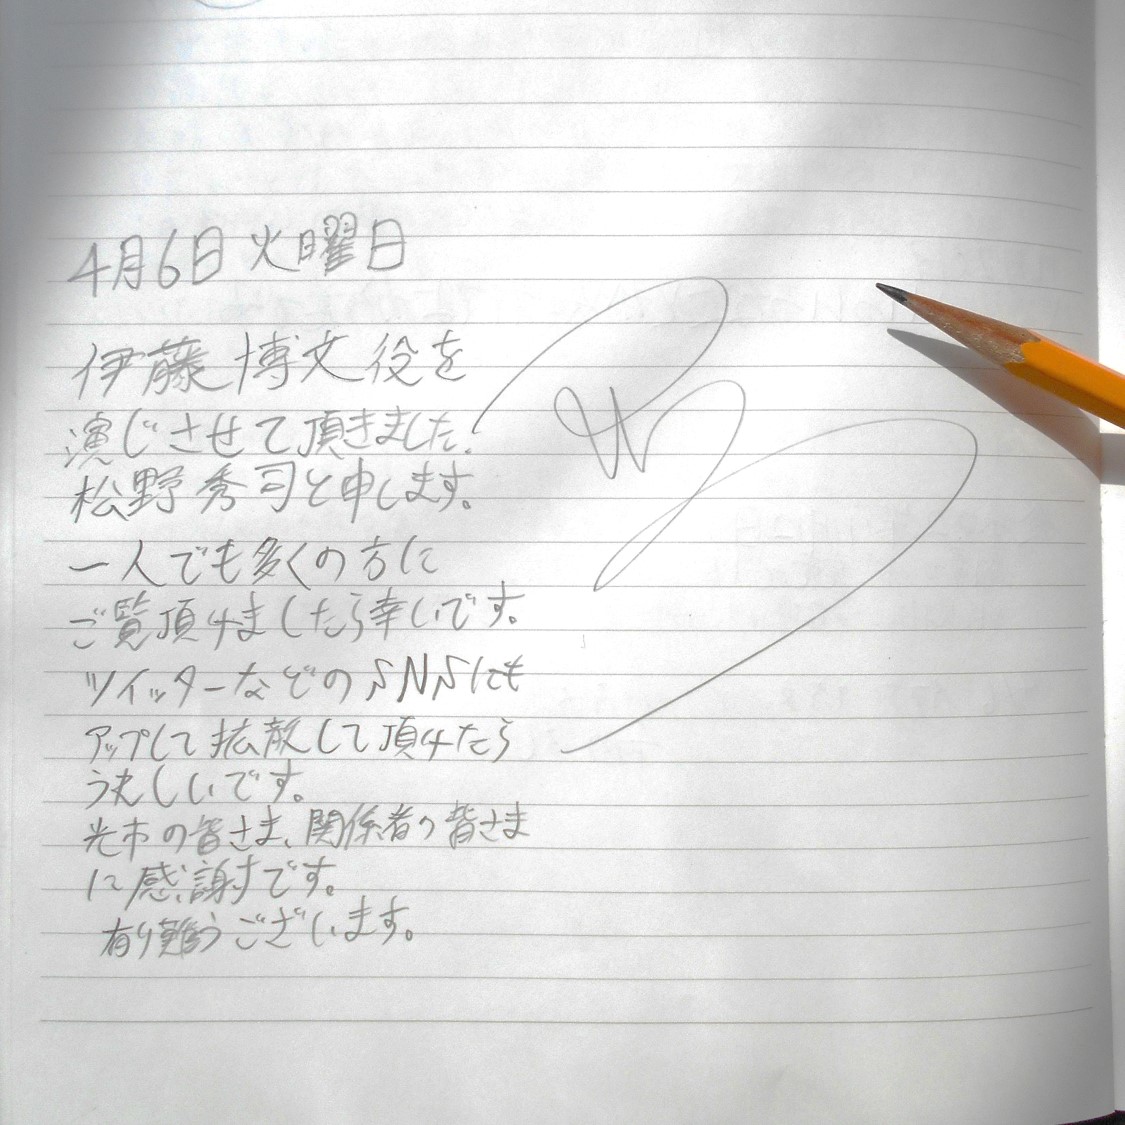 4月6日 火曜日
伊藤博文役を
演じさせて頂きました!
松野秀司と申します。
一人でも多くの方に
ご覧頂けましたら幸いです。
ツイッターなどのSNSにも
アップして拡散して頂けたら
うれしいです。
光市の皆さま、関係者の皆さま
に感謝です。
有り難うございます。